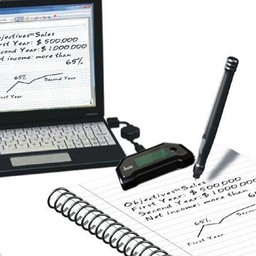 Objectives=Sales
First Year: $500,000
Second Year: $1,000,000
Net income: more than
65%
65%
Second Year
First Year
Objectives=Sales
First Year: $500,000
Second Year: $1,000,000
Net income: more than
65%
First Year